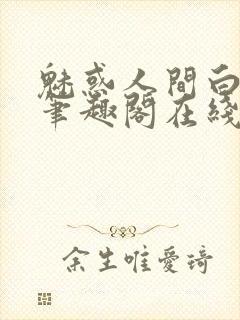 魅惑人間白
筆趣閣在綫
余生唯愛琦